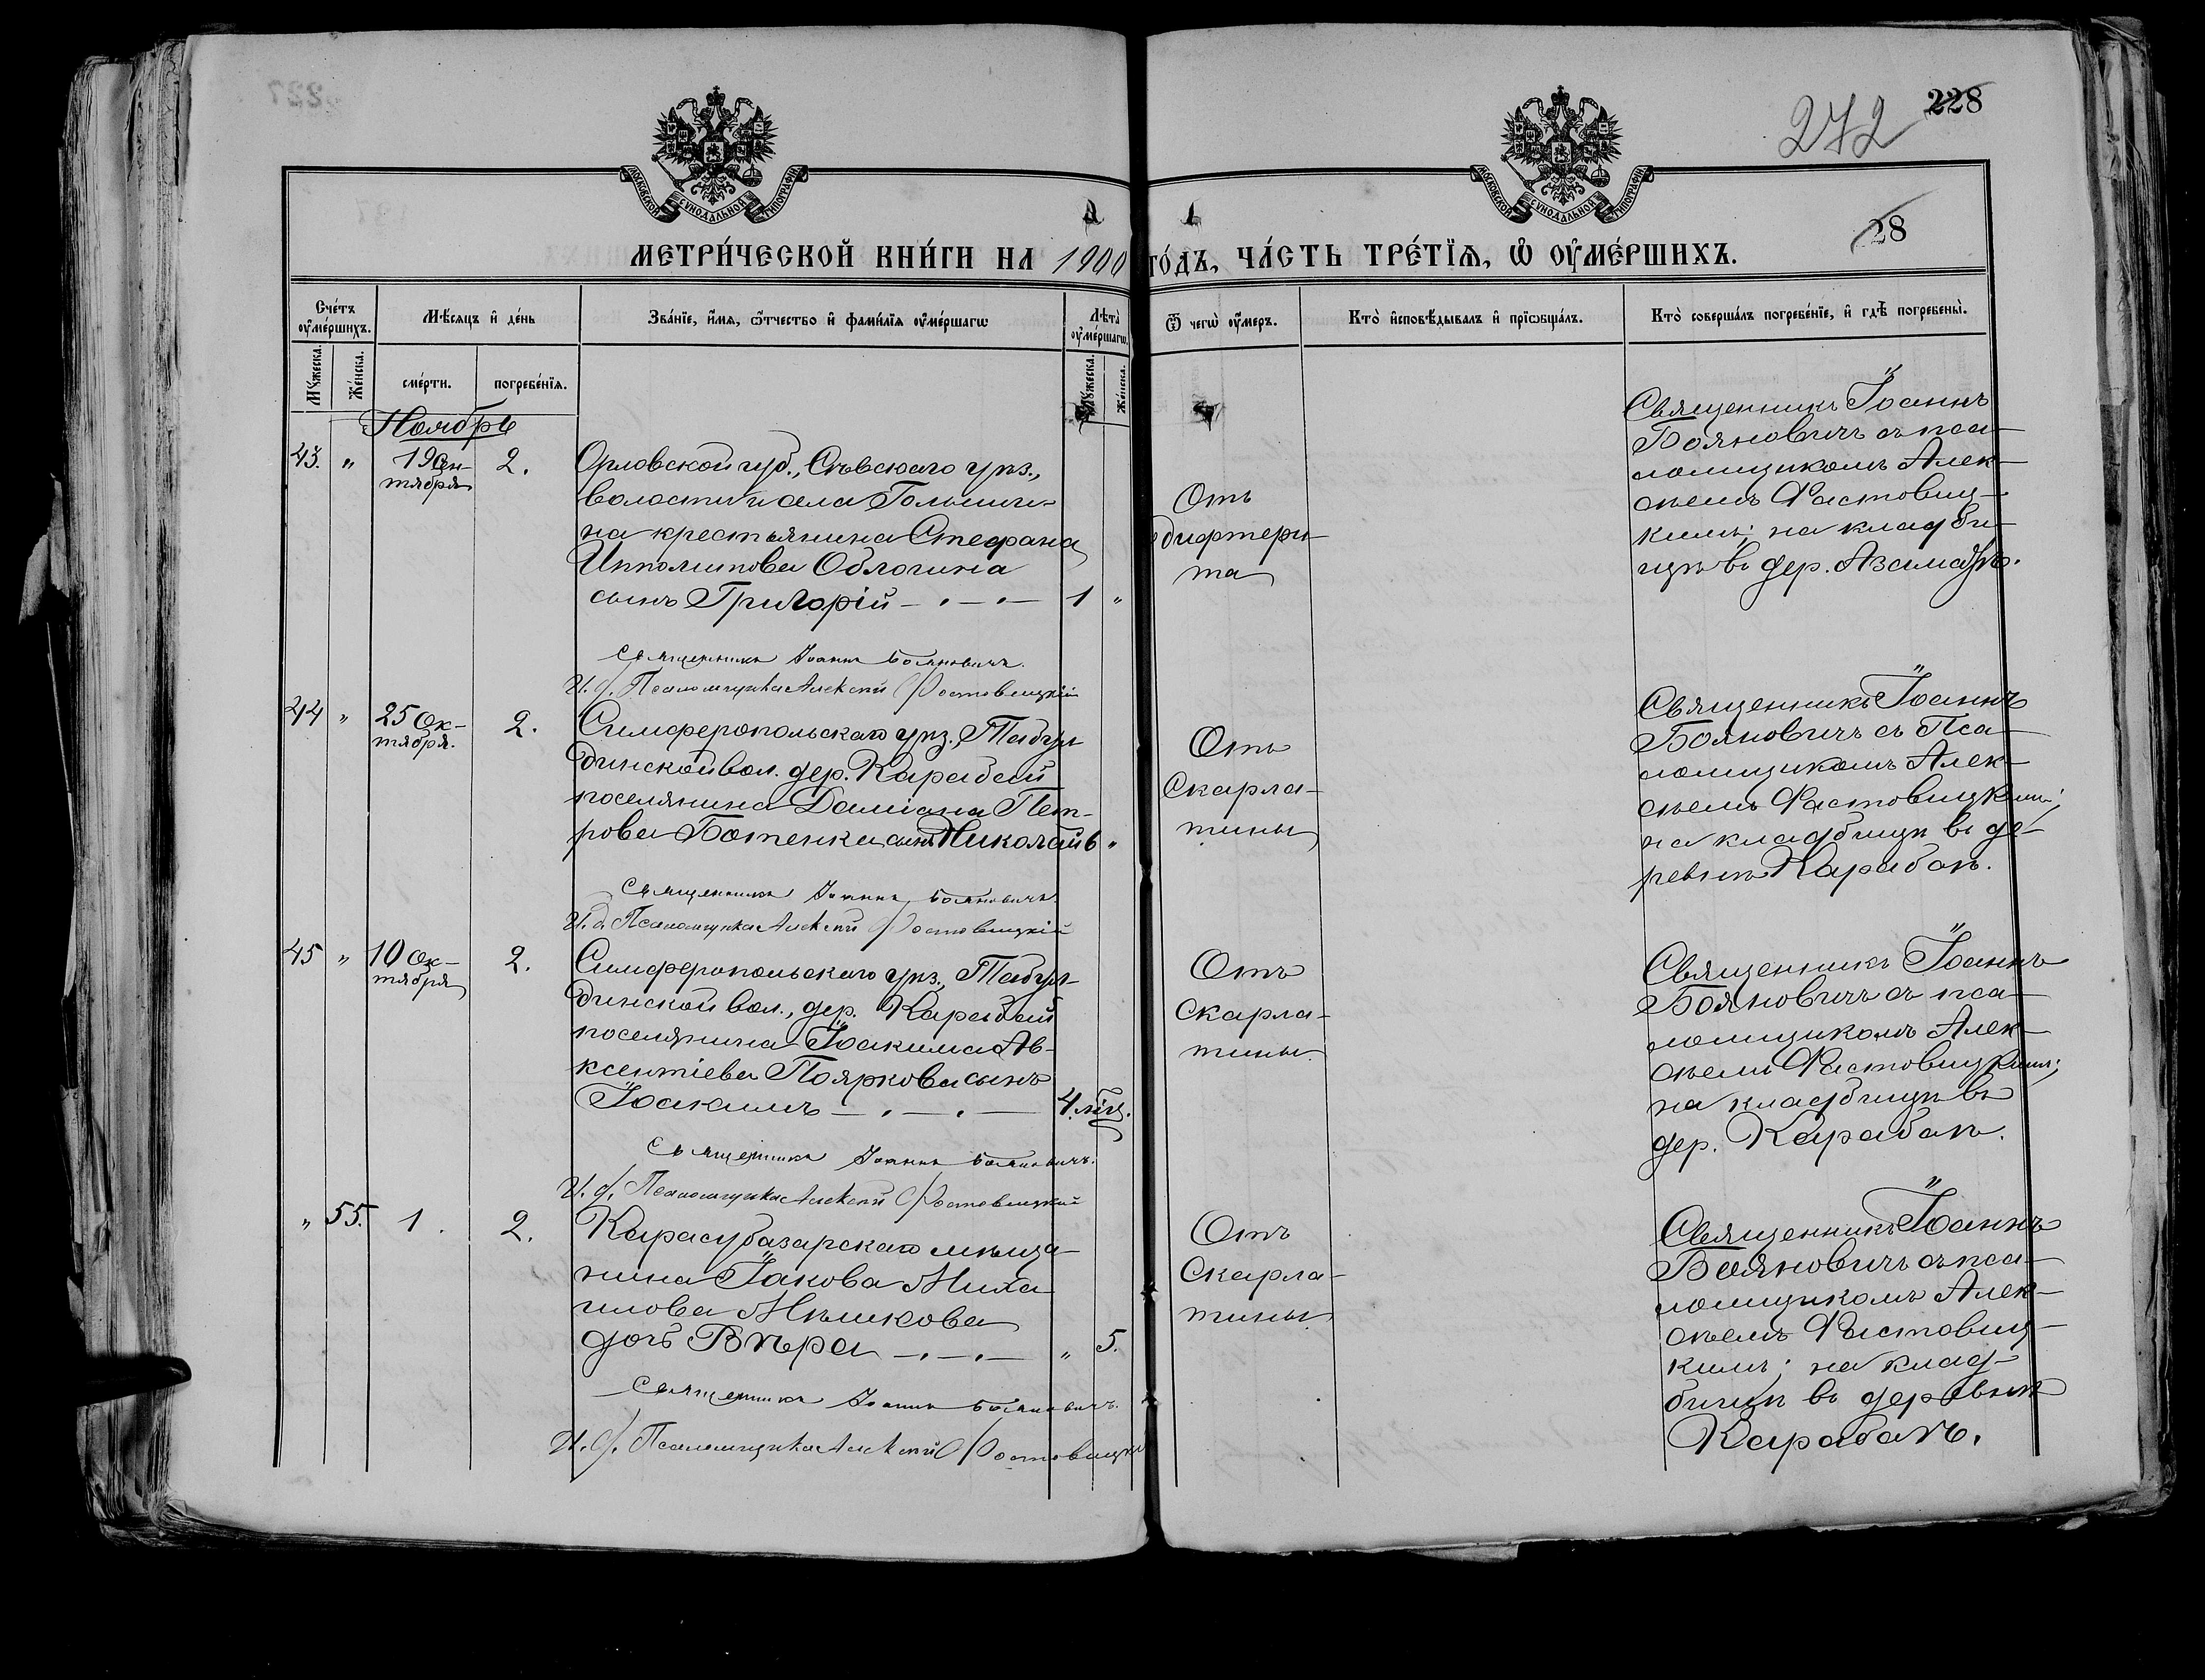 272 228
МОСКОВСКОЙ СѴНОДАЛЬНОЙ ТИПОГРАФІИ
МОСКОВСКОЙ СѴНОДАЛЬНОЙ ТИПОГРАФІИ
28
МЕТРИ́ЧЕСКОЙ КНИ́ГИ НА 1900 ГО́ДЪ, ЧА́СТЬ ТРЕ́ТЇѦ, Ѡ҆ ОУ҆МЕ́РШИХЪ.
Сче́тъ оу҆ме́ршихъ.
Мꙋ́жеска.
Же́нска.
Мѣ́сяцъ и҆ де́нь
сме́рти.
погребе́нїѧ.
Зва́нїе, и҆́мѧ, ѻ҆́тчество и҆ фами́лїѧ оу҆ме́ршагѡ
Лѣ́та оу҆ме́ршагѡ.
Мꙋ́жеска.
Же́нска.
Ѿ чегѡ̀ оу҆́меръ.
Кто̀ и҆сповѣ́дывалъ и҆ прїѡбща́лъ.
Кто̀ соверша́лъ погребе́нїе, и҆ гдѣ̀ погребены̀.
Ноябрь
43. " 19 Сен-
тября
2.
Орловской губ., Сѣвскаго уѣз.,
волости и села Голыши-
на крестьянина Стефана
Ипполитова Облогина
сынъ Григорій - . - . - 1 "
Отъ
дифтери-
та
Священникъ Іоаннъ
Бояновичъ съ пса-
ломщикомъ Алек-
сѣемъ Фастовиц-
кимъ; на кладби-
щѣ въ дер. Азаматъ.
Священникъ Іоаннъ Бояновичъ.
И. д. Псаломщика Алексѣй Фастовицкій
44 " 25 Ок-
тября.
2.
Симферопольскаго уѣз., Табул-
динской вол. дер. Карабай
поселянина Даміана Пет-
рова Ботенка сынъ Николай 6 "
Отъ
Скарла-
тины
Священникъ Іоаннъ
Бояновичъ съ Пса-
ломщикомъ Алек-
сѣемъ Фастовицкимъ;
на кладбищѣ въ де-
ревнѣ Карабаѣ.
Священникъ Іоаннъ Бояновичъ.
И. д. Псаломщика Алексѣй Фастовицкій
45 " 10 Ок-
тября
2.
Симферопольскаго уѣз., Табул-
динской вол., дер. Карабай
поселянина Іоакима Ав-
ксентіева Пояркова сынъ
Іоакимъ - . - . - 4 мѣц.
Отъ
Скарла-
тины.
Священникъ Іоаннъ
Бояновичъ съ пса-
ломщикомъ Алек-
сѣемъ Фастовицкимъ;
на кладбищѣ въ
дер. Карабаѣ.
Священникъ Іоаннъ Бояновичъ.
И. д. Псаломщика Алексѣй Фастовицкій
" 55. 1. 2.
Карасубазарскаго мѣща-
нина Іакова Миха-
илова Мѣшкова
дочь Вѣра - . - . - " 5.
Отъ
Скарла-
тины
Священникъ Іоаннъ
Бояновичъ съ пса-
ломщикомъ Алек-
сѣемъ Фастовиц-
кимъ; на клад-
бищѣ въ деревнѣ
Карабаѣ.
Священникъ Іоаннъ Бояновичъ.
И. д. Псаломщика Алексѣй Фастовицкі